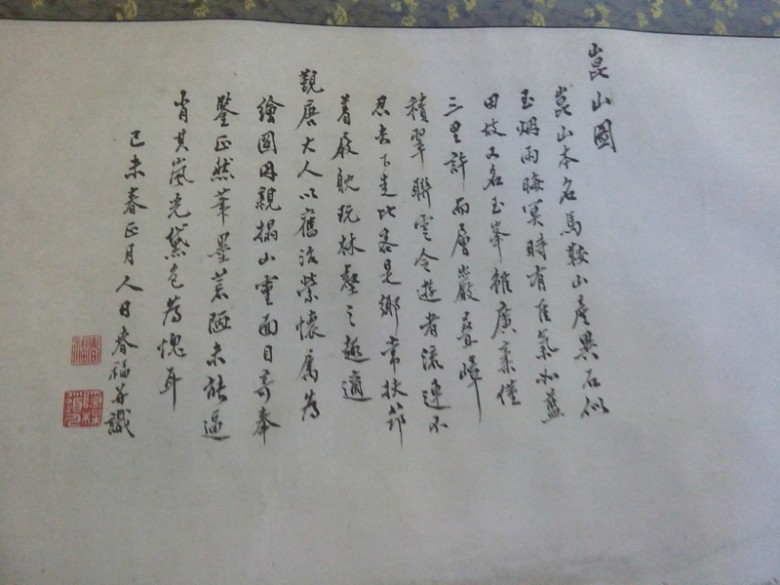 崑山圖
崑山本名馬鞍山產異石似
玉烟雨晦冥時有佳氣如藍
田故又名玉峯雖廣袤僅
三里許而層巖疊嶂
積翠聯雲令遊者流連不
忍去下走比客是鄉常扶筇
着屐躭玩林壑之趣適
觀唐大人以舊治縈懷屬為
繪圖因親搨山靈面目寄奉
鑒正然筆墨荒陋未能逼
肖其嵐光黛色為愧耳
己未春正月人日春福並識